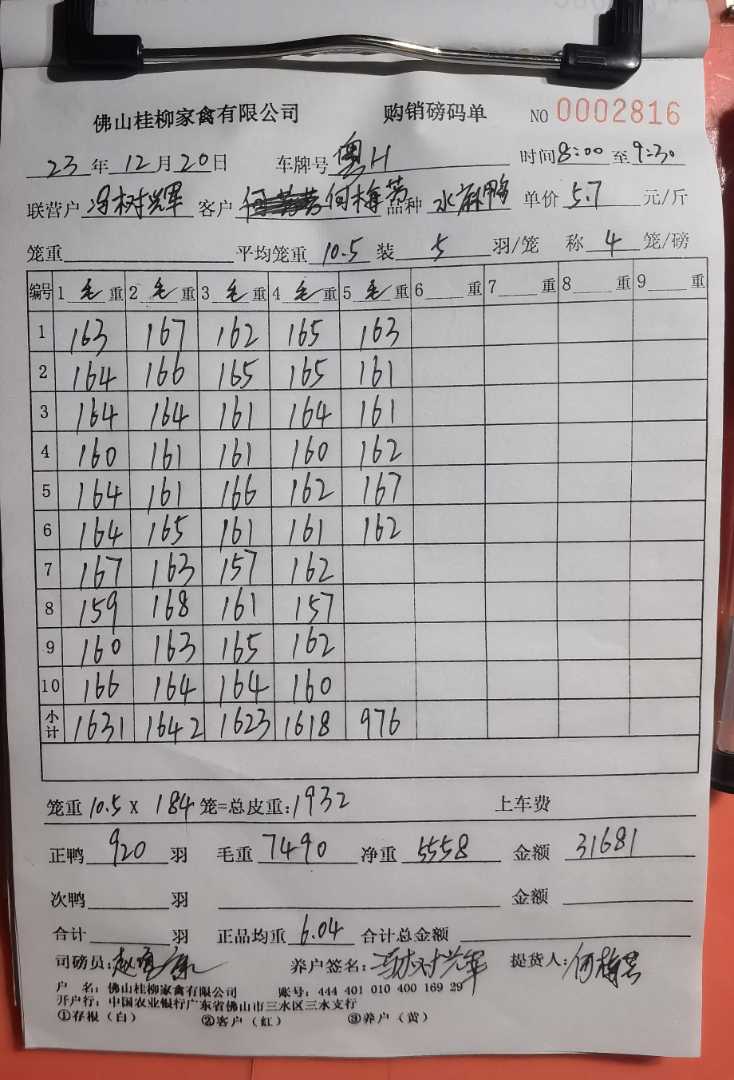 佛山桂柳家禽有限公司 购销磅码单 NO 0002816
23 年 12 月 20 日 车牌号 粤H 时间 8:00 至 9:30
联营户 冯树辉 客户 何梅芳 品种 水麻鸭 单价 5.7 元/斤
笼重 平均笼重 10.5 装 5 羽/笼 称 4 笼/磅
编号 1 毛 重 2 毛 重 3 毛 重 4 毛 重 5 毛 重 6 重 7 重 8 重 9 重
1 163 167 162 165 163
2 164 166 165 165 161
3 164 164 161 164 161
4 160 161 161 160 162
5 164 161 166 162 167
6 164 165 161 161 162
7 167 163 157 162
8 159 168 161 157
9 160 163 165 162
10 166 164 164 160
小计 1631 1642 1623 1618 976
笼重 10.5 X 184 笼=总皮重: 1932 上车费
正鸭 920 羽 毛重 7490 净重 5558 金额 31681
次鸭 羽 金额
合计 羽 正品均重 6.04 合计总金额
司磅员: 赵 养户签名: 冯树辉 提货人: 何梅芳
户 名: 佛山桂柳家禽有限公司 账号: 444 401 010 400 169 29
开户行: 中国农业银行广东省佛山市三水区三水支行
①存根(白) ②客户(红) ③养户(黄)